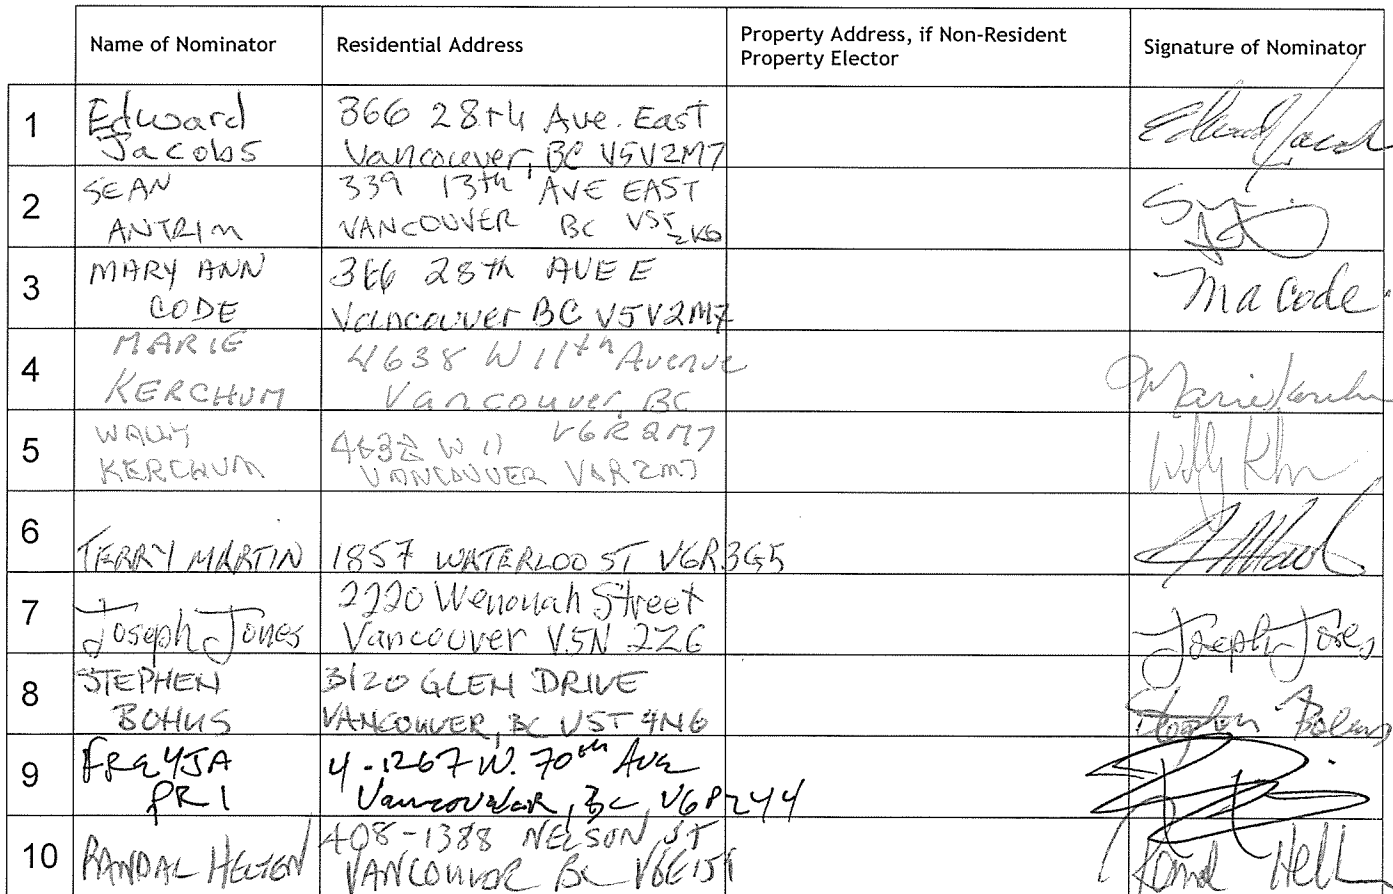 Name of Nominator
Residential Address
Property Address, if Non-Resident
Property Elector
Signature of Nominator
1
Edward
Jacobs
366 28th Ave. East
Vancouver, BC V5V2M7
Edward Jacobs
2
SEAN
ANTRIM
339 13th AVE EAST
VANCOUVER BC V5T
2K6
3
MARY ANN
CODE
366 28th AVE E
Vancouver BC V5V2M7
Ma Code
4
MARIE
KERCHUM
4638 W 11th Avenue
Vancouver, BC
V6R2M7
Marie
5
WALLY
KERCHUM
4638 W 11
VANCOUVER V6R2M7
6
TERRY MARTIN
1857 WATERLOO ST V6R3G5
7
Joseph Jones
2220 Wenonah Street
Vancouver V5N 2Z6
Joseph Jones
8
STEPHEN
BOHUS
3120 GLEN DRIVE
VANCOUVER, BC V5T 4N6
Stephen Bohus
9
FREYJA
PRI
4-1267 W. 70th Ave
Vancouver, BC, V6P2Y4
10
RANDAL HELTEN
408-1388 NELSON ST
VANCOUVER BC